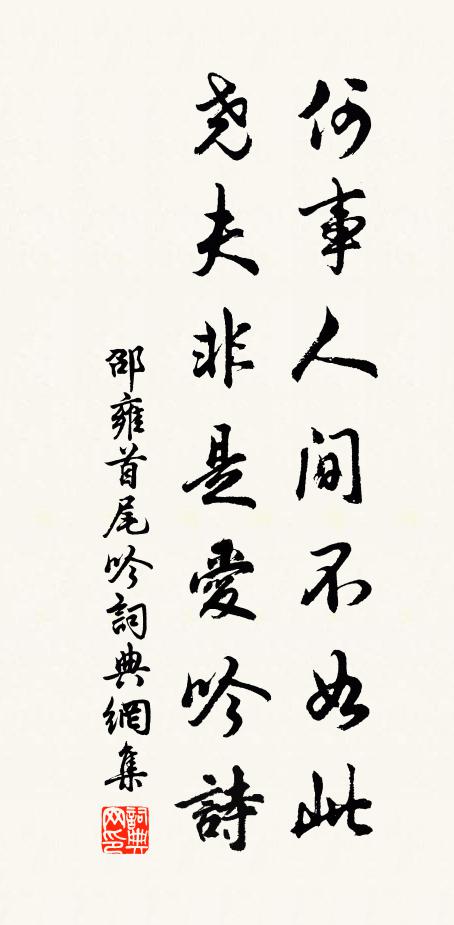 何事人间不如此
尧夫非是爱吟詩
邵雍首尾吟詞典網集
詞典网印